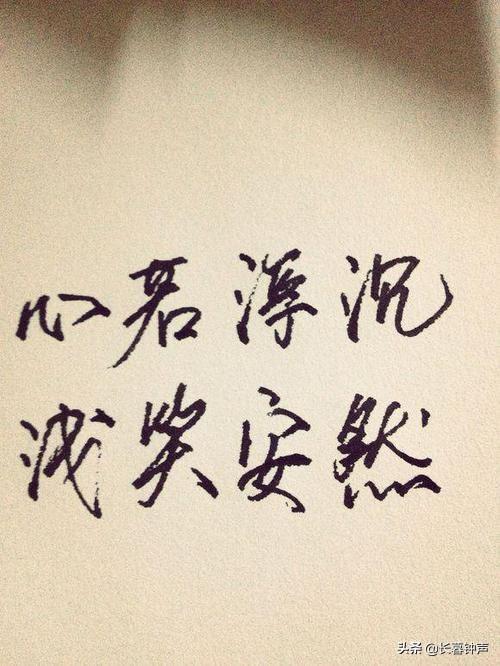 心若浮沉
浅笑安然
头条 @长暮钟声